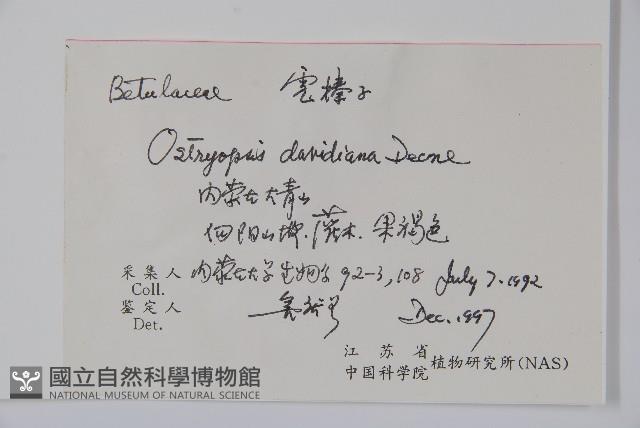 Betulaceae 虎榛子
Ostryopsis davidiana Decne
内蒙古大青山
阳山坡.灌木.果褐色
采集人 内蒙古大学生物系 92-3,108 July 7.1992
Coll.
鉴定人 Dec.1997
Det.
江苏省
中国科学院 植物研究所(NAS)
國立自然科學博物館
NATIONAL MUSEUM OF NATURAL SCIENCE